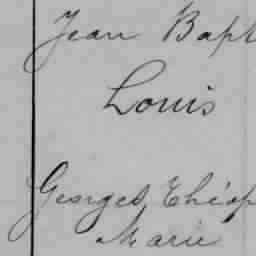 Jean Bapt
Louis
Georges, Théop
Marie